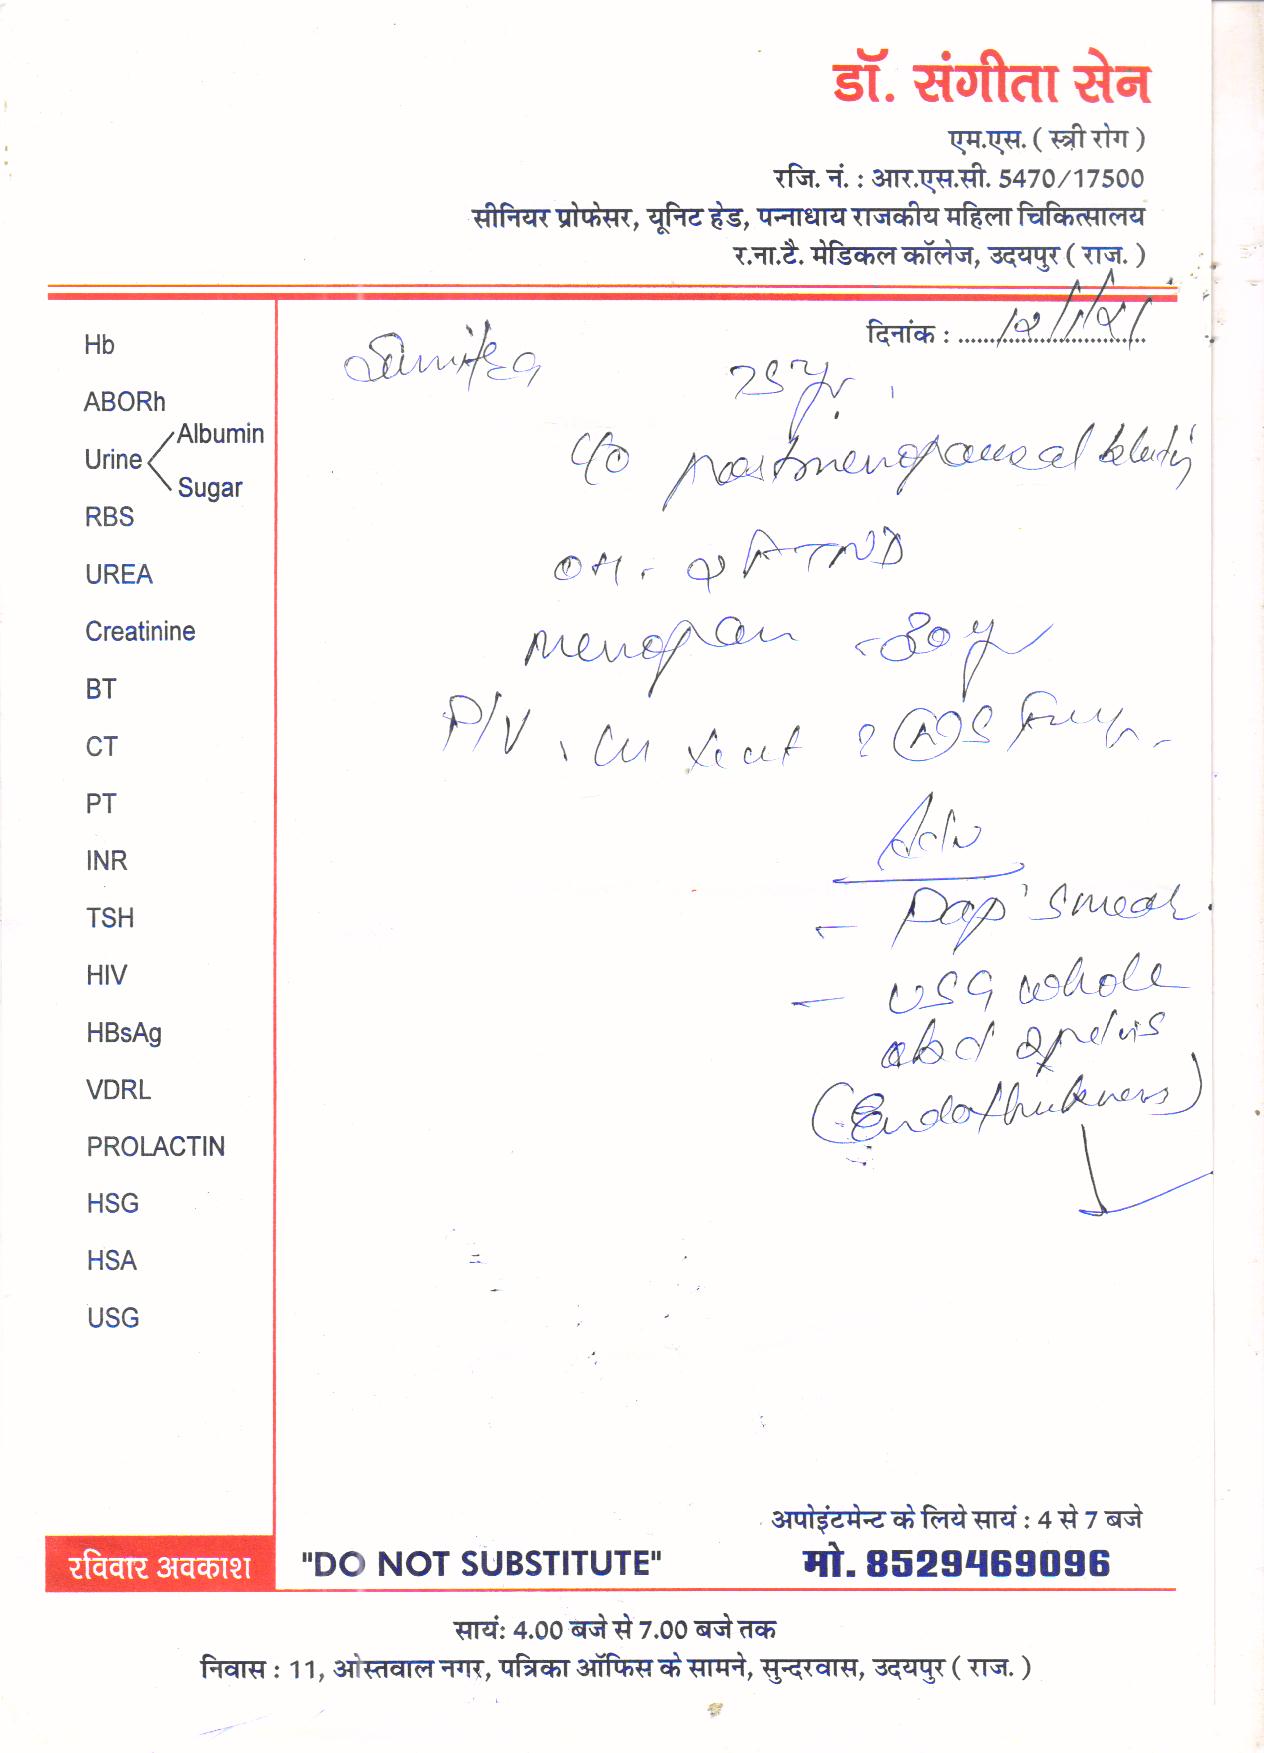 डॉ. संगीता सेन
एम.एस. ( स्त्री रोग )
रजि. नं. : आर.एस.सी. 5470/17500
सीनियर प्रोफेसर, यूनिट हेड, पन्नाधाय राजकीय महिला चिकित्सालय
र.ना.टै. मेडिकल कॉलेज, उदयपुर ( राज. )
दिनांक :
Hb
ABORh
Urine
Albumin
Sugar
RBS
UREA
Creatinine
BT
CT
PT
INR
TSH
HIV
HBsAg
VDRL
PROLACTIN
HSG
HSA
USG
yr.
c/o postmenopausal
OH.
P/V
Adv
- Pap smear
- USG whole
abd & pelvis
रविवार अवकाश
"DO NOT SUBSTITUTE"
अपोइंटमेन्ट के लिये सायं : 4 से 7 बजे
मो. 8529469096
सायं: 4.00 बजे से 7.00 बजे तक
निवास : 11, ओस्तवाल नगर, पत्रिका ऑफिस के सामने, सुन्दरवास, उदयपुर ( राज. )